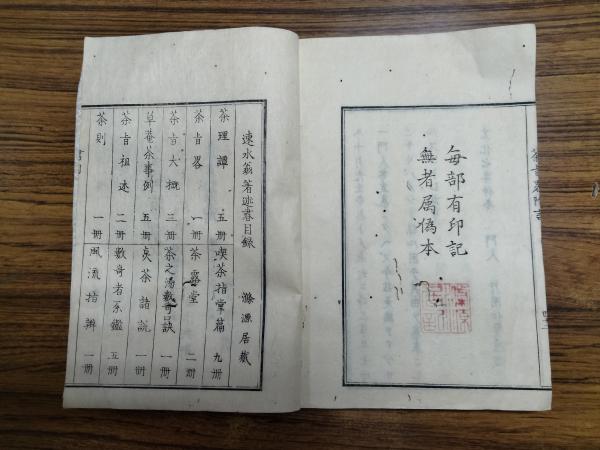 每部有印記
無者属偽本
速水翁著述書目録
滌源居蔵
茶理譚 五冊
茶旨畧 一冊
茶旨大概 三冊
草菴茶事例 五冊
茶旨祖述 二冊
茶則 一冊
喫茶指掌篇 九冊
茶露堂 二冊
茶之湯数奇口訣 一冊
奌茶諸説 一冊
数奇者系鑑 五冊
風流指辨 一冊